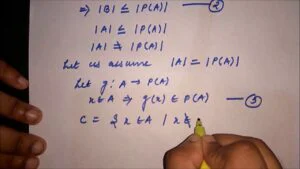 ⇒ |B| ≤ |P(A)| — 2
|A| ≤ |P(A)|
|A| ≠ |P(A)|
Let us assume |A| = |P(A)|
Let g: A → P(A)
x ∈ A ⇒ g(x) ∈ P(A) — 3
C = { x ∈ A / x